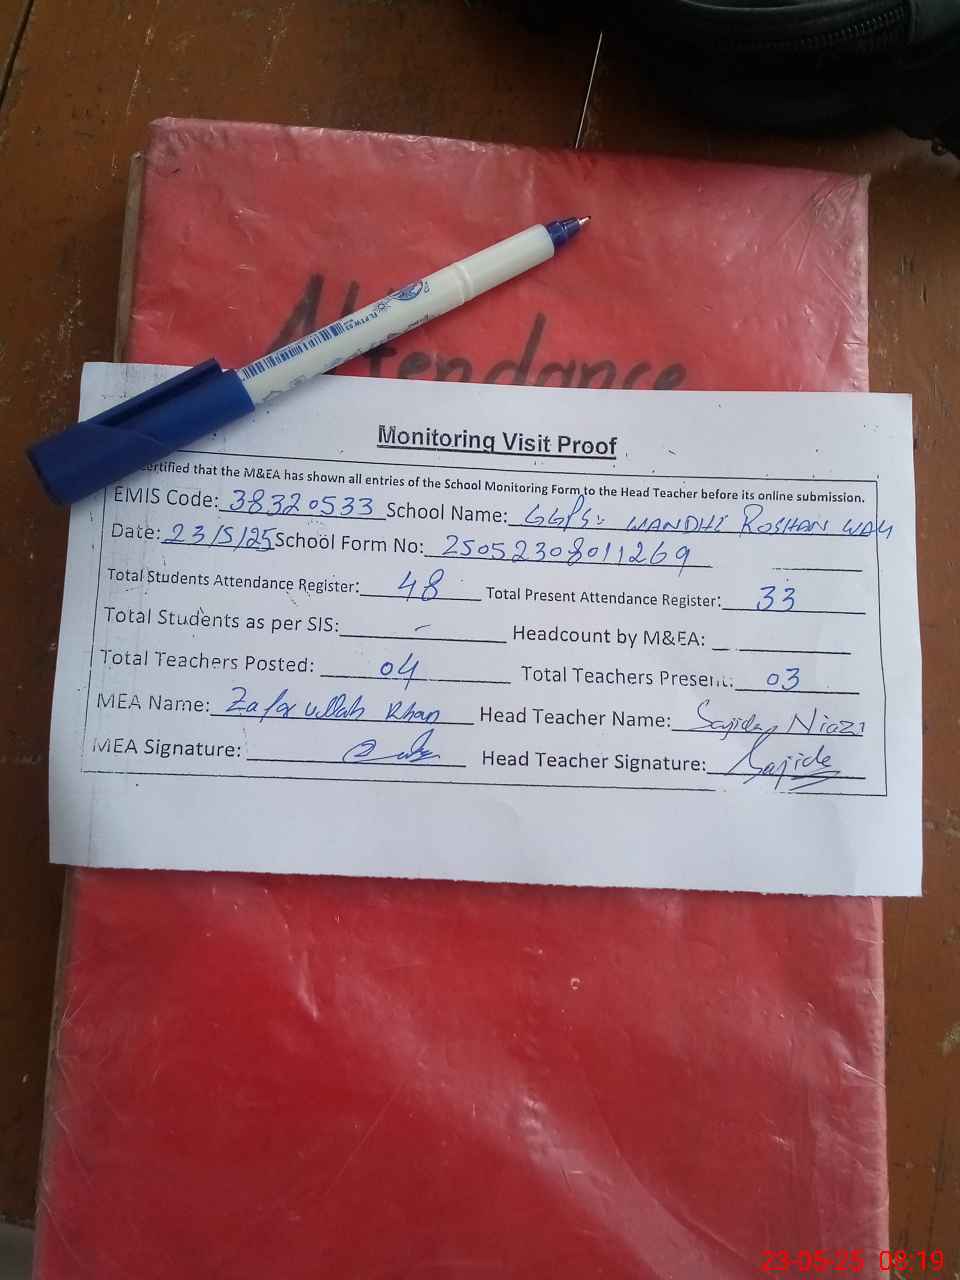 Attendance
FLPTW.03
Monitoring Visit Proof
certified that the M&EA has shown all entries of the School Monitoring Form to the Head Teacher before its online submission.
EMIS Code: 38320533 School Name: GGPS: WANDHI ROSHAN WALI
Date: 23/5/25 School Form No: 25052308011269
Total Students Attendance Register: 48 Total Present Attendance Register: 33
Total Students as per SIS: - Headcount by M&EA:
Total Teachers Posted: 04 Total Teachers Present: 03
MEA Name: Zafar ullah Khan Head Teacher Name: Sajida Niazi
MEA Signature: Head Teacher Signature: Sajida
23-05-25 08:19